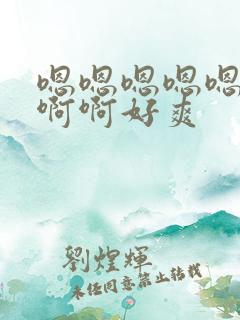 嗯嗯嗯嗯嗯
啊啊好爽
劉煌輝
未经同意禁止转载